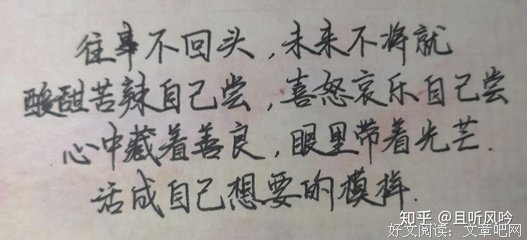 往事不回头,未来不将就
酸甜苦辣自己尝,喜怒哀乐自己尝
心中藏着善良,眼里带着光芒.
活成自己想要的模样.
知乎 @且听风吟
好文阅读:文章吧网